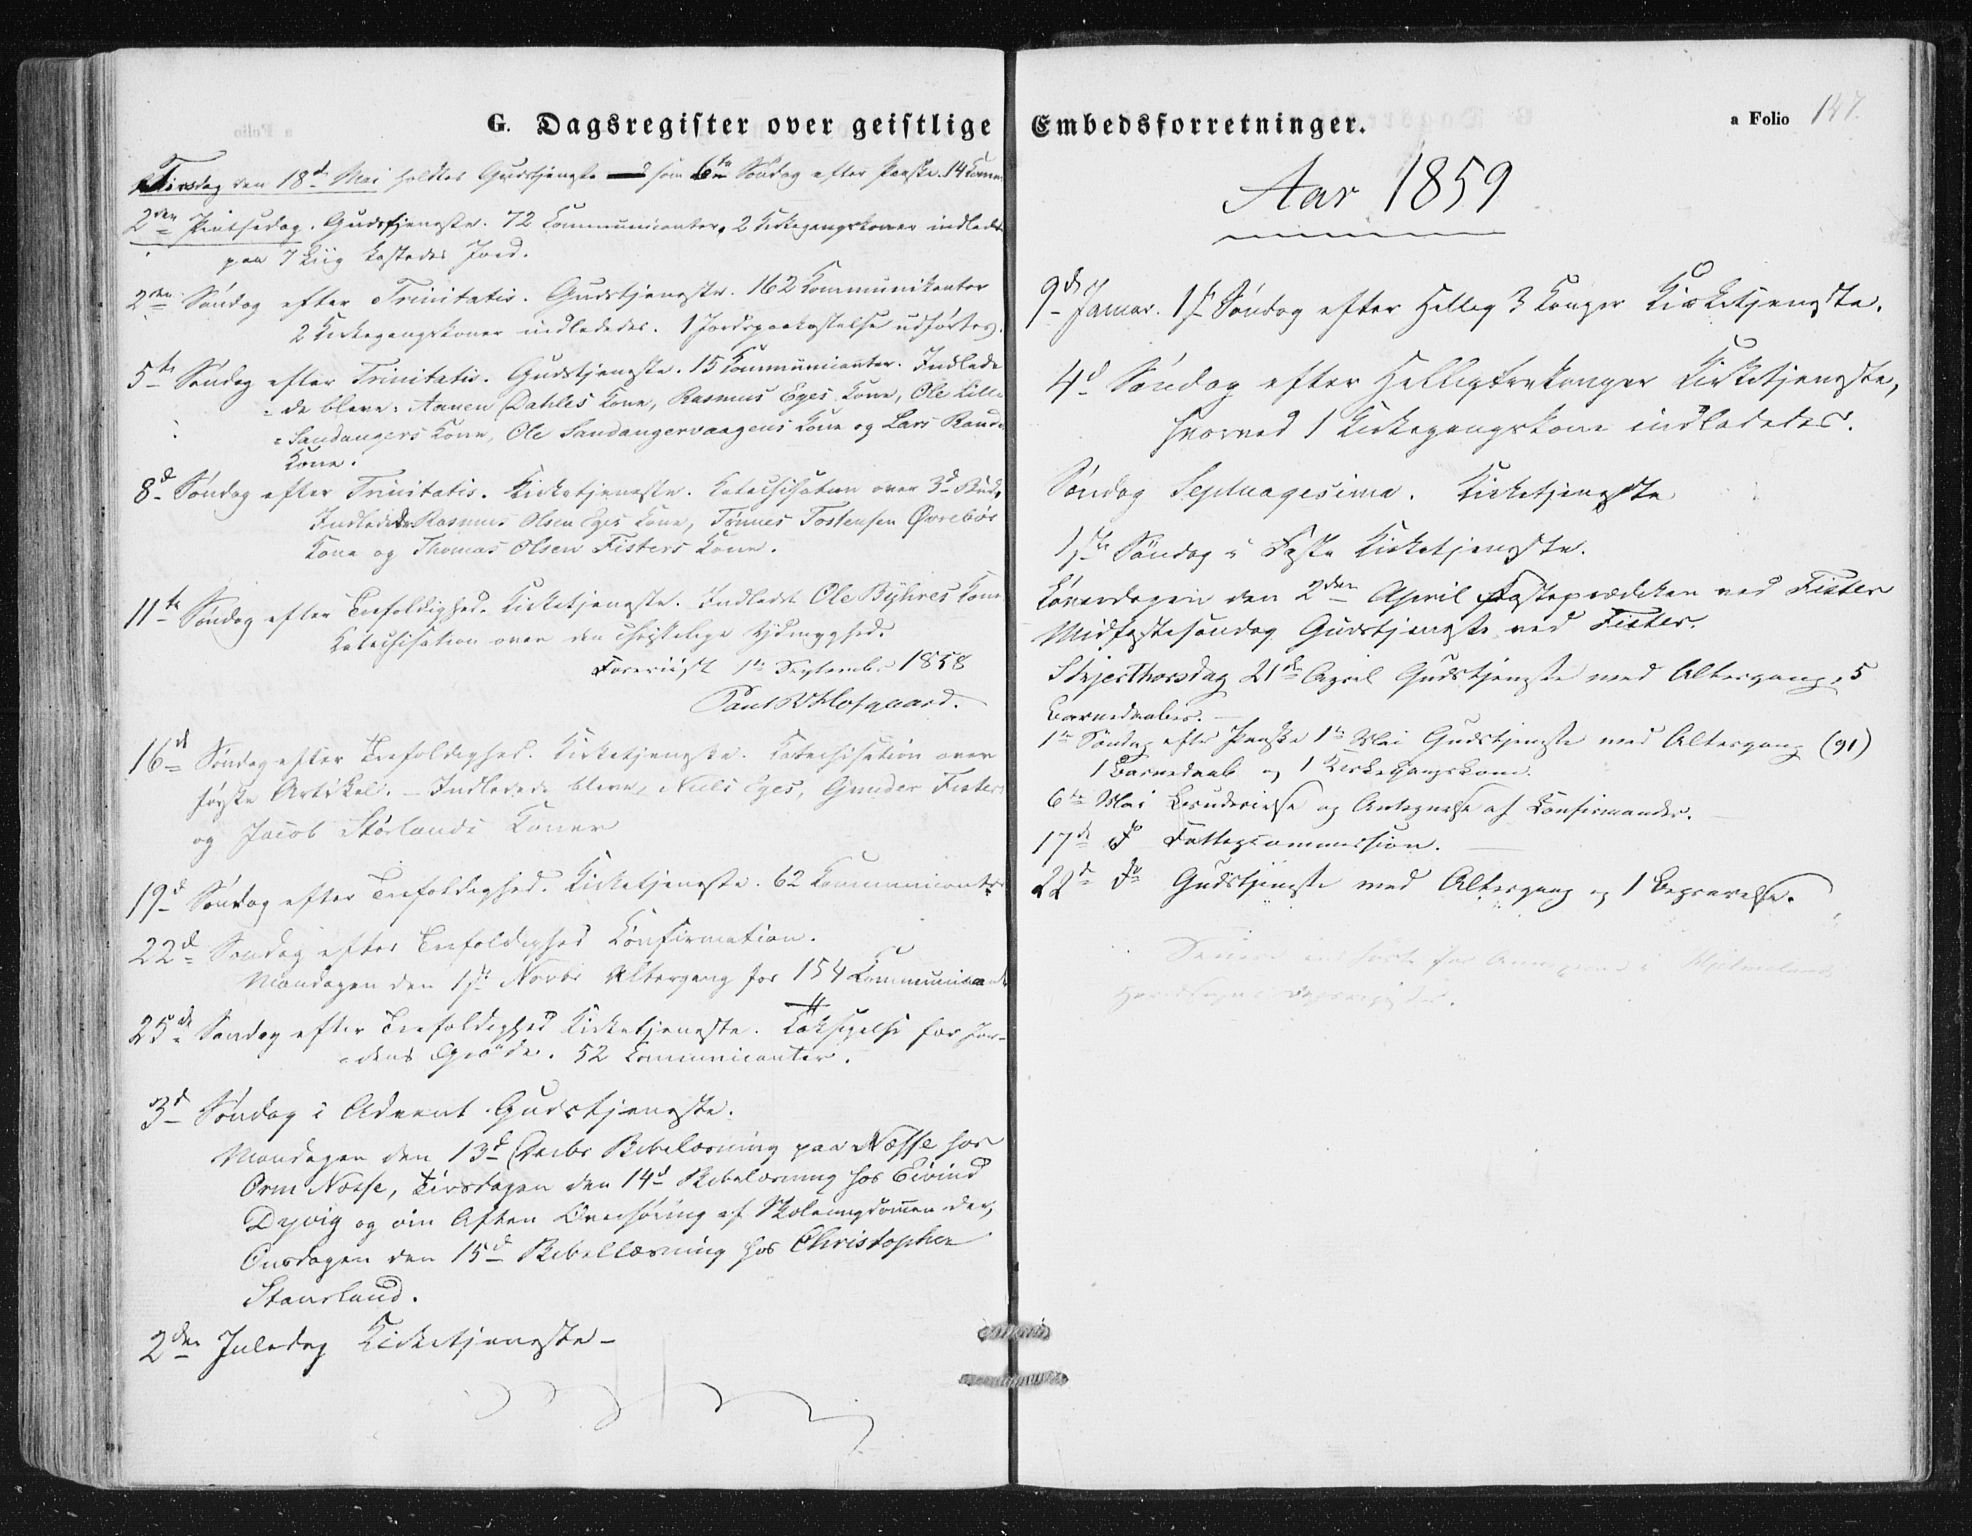 G. Dagsregister over geistlige
Tirsdag den 18d Mai holdtes Gudstjeneste som 6te Søndag efter Paaske. 14 Comm
2den Pintsedag. Gudstjeneste. 72 Communicanter. 2 Kirkegangskoner indledet
paa 7 Liig kastedes Jord.
2den Søndag efter Trinitatis. Gudstjeneste. 162 Kommunikanter
2 Kirkegangskoner indlededes. 1 Jordspaakastelse udførtes.
5te Søndag efter Trinitatis. Gudstjeneste. 15 Communicanter. Indlede
=de bleve: Aanen Dahles Kone, Rasmus Eges Kone, Ole Lille
=Sandangers Kone, Ole Sandangervaagens Kone og Lars Rands
Kone.
8d Søndag efter Trinitatis. Kirketjeneste. Katechisation over 3d Bud.
Indledede Rasmus Olsen Eges Kone, Tønnes Tostensen Øvrebøs
Kone og Thomas Olsen Fisters Kone.
11te Søndag efter Trefoldighed. Kirketjeneste. Indledet Ole Kone
Katechisation over den christelige Ydmyghed.
Foreviist 1te Septemb. 1858
Paul Hofgaard.
16de Søndag efter Trefoldighed. Kirketjeneste. Katechisation over
første Artikel. – Indledede bleve, Niels Eges, Gunder Fisters
og Jacob Størlands Koner
19d Søndag efter Trefoldighed. Kirketjeneste. 62 Communicanter
22d Søndag efter Trefoldighed Confirmation.
Mandagen den 1st Novbr Altergang for 154 Communicant
25de Søndag efter Trefoldighed Kirketjeneste. Taksigelse for Jor-
=dens Grøde. 52 Communicanter.
3d Søndag i Advent Gudstjeneste.
Mandagen den 13d Decbr Bibellæsning paa Næsse hos
Orm Næsse, Tirsdagen den 14d Bibellæsning hos Eivind
Dyvig og om Aften Overhøring af Skoleungdommen der,
Onsdagen den 15d Bibellæsning hos Christopher
Stausland.
2den Juledag Kirketjeneste –
Embedsforretninger.
a Folio 147.
Aar 1859
9de Januar. 1st Søndag efter Hellig 3 Konger Kirketjeneste.
4d Søndag efter Helligtrekonger Kirketjeneste,
hvorved 1 Kirkegangskone indlededes.
Søndag Septuagesima. Kirketjeneste
1ste Søndag i Faste Kirketjeneste.
Løverdagen den 2den April Fasteprædiken ved Fister
Midfastesøndag Gudstjeneste ved Fister.
Skjærthorsdag 21de April Gudstjeneste med Altergang, 5
Barnedaaber. –
1te Søndag efter Paaske 1te Mai Gudstjeneste med Altergang (91)
1 Barnedaab og 1 Kirkegangskone.
6te Mai og Antegnelse af Confirmander.
17de Do Fattigcommission. –
22de Do Gudstjeneste med Altergang og 1 Begravelse.
Senere i Hjelmelands
Hovedsogns Dagregister.